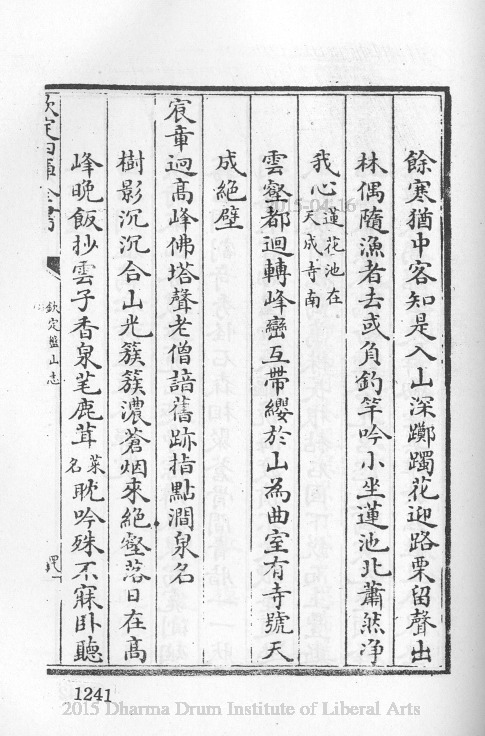 餘寒猶中客知是入山深躑躅花迎路栗留聲出
林偶隨漁者去或負釣竿吟小坐蓮池北蕭然净
我心蓮花池在天成寺南
雲壑都迴轉峰巒互帶纓於山為曲室有寺號天
成絶壁
宸章迥高峰佛塔聲老僧諳舊跡指點澗泉名
樹影沉沉合山光簇簇濃蒼烟來絶壑落日在高
峰晚飯抄雲子香泉芼鹿茸菜名耽吟殊不寐卧聽
欽定四庫全書
欽定盤山志
1241
2015-04-16
2015 Dharma Drum Institute of Liberal Arts